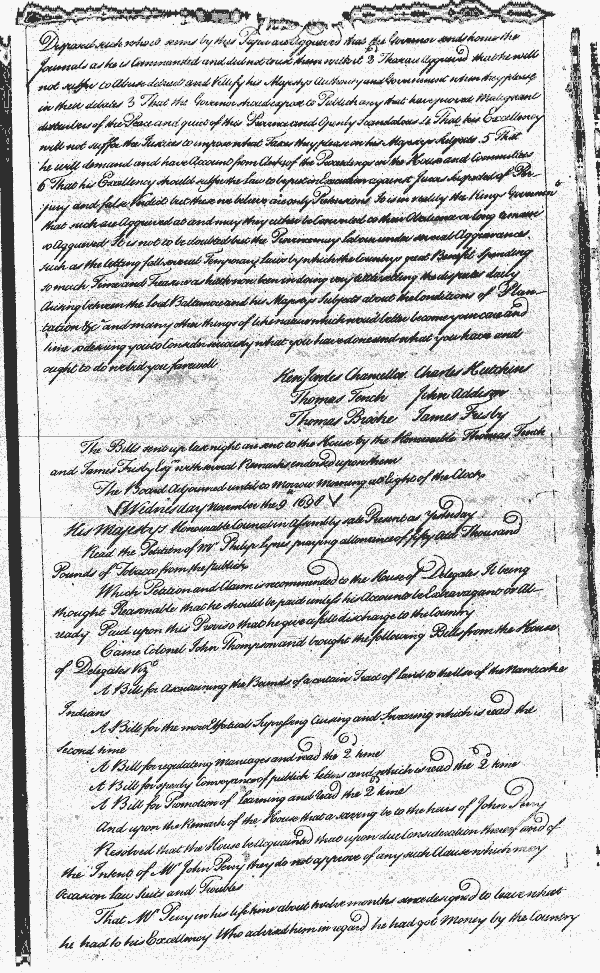 Disposed such whose seems by this Paper are Aggrieved that the Governor sends home the
Journals as he is Commanded and did not trust them with it 2 There are Aggrieved that he will
not suffer to Abuse detract and Villify his Majestys Authority and Government when they please
in their debates 3 That the Governor should expose to Publish any that have proved Malignant
disturbers of the Peace and quiet of this Province and Openly Scandalous 4 That his Excellency
will not suffer the Justices to impose what Taxes they please on his Majestys subjects 5 That
he will demand and have Account from Clerks of the Proceedings in the House and Committees
6 That his Excellency should suffer the Law to be put in Execution against Jurors suspected of Per
jury and false Verdict but these we believe are only Pretensions It is in reality the Kings Governor
that such are Aggrieved at and may they either be Converted to their Obedience or long remain
so Aggrieved It is not to be doubted but the Province may labour under several Aggrievances
such as the letting fall several Temporary Laws by which the Country's great Benefit Spending
so much Time and Treasure as hath now been in doing very little ending the disputes daily
Arising between the Lord Baltemore and his Majestys Subjects about the Conditions of Plan-
tation &c and many other things of like nature which would better become your care and
time so desiring you to Consider seriously what you have done and what you have and
ought to do we bid you farewell
Hen: Jowles Chancellor Charles Hutchins
Thomas Tench John Addison
Thomas Brooke James Frisby
The Bills sent up last night are sent to the House by the Honourable Thomas Tench
and James Frisby Esqrs with several Remarks endorsed upon them
The Board Adjourned until to Morrow Morning at Eight of the Clock
Wednesday November the 9th 1698
His Majestys Honourable Council in Assembly sate Present as Yesterday
Read the Petition of Mr Philip Lynes praying allowance of fifty odd Thousand
Pounds of Tobacco from the publick
Which Petition and Claim is recommended to the House of Delegates It being
thought Reasonable that he should be paid unless his Account be Extravagant or Al-
ready Paid upon this Proviso that he give a full discharge to the Country
Came Colonel John Thompson and brought the following Bills from the House
of Delegates Vizt
A Bill for Ascertaining the Bounds of a certain Tract of Land to the Use of the Nanticoke
Indians
A Bill for the most effectual Supressing Cursing and Swearing which is read the
Second time
A Bill for regulating Marriages and read the 2 time
A Bill for speedy Conveyance of publick Letters and which is read the 2 time
A Bill for Promotion of Learning and read the 2 time
And upon the Remark of the House that a saving be to the heirs of John Perry
Resolved that the House be Acquainted that upon due Consideration thereof and of
the Intent of Mr John Perry they do not approve of any such Clause which may
Occasion Law Suits and Troubles
That Mr Perry in his life time about twelve months since designed to leave what
he had to his Excellency Who advised him in regard he had got Money by the Country